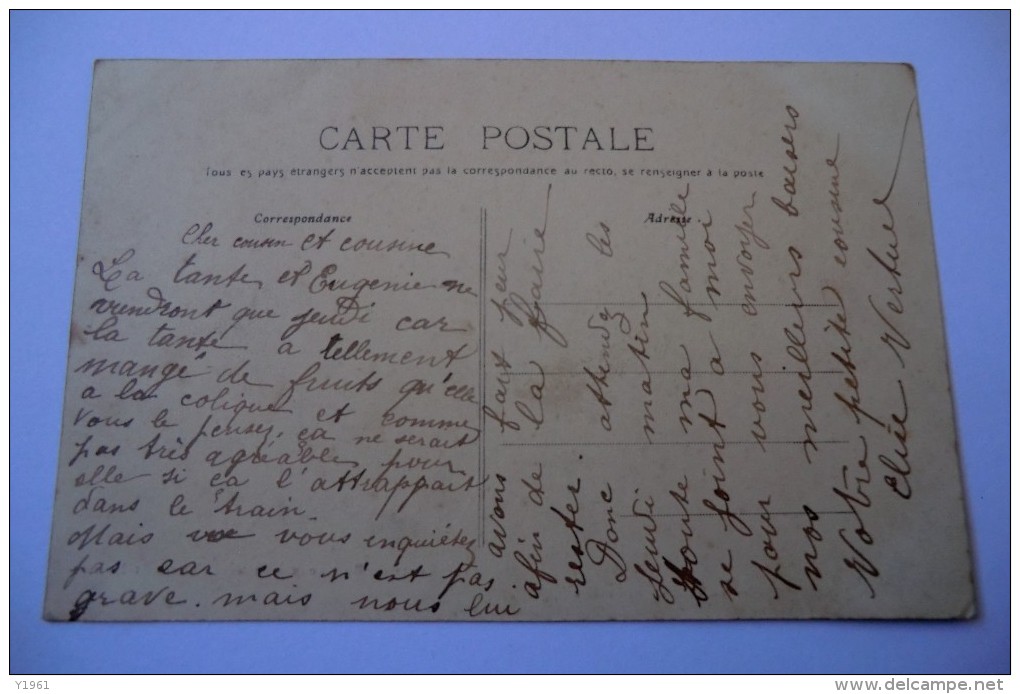 CARTE POSTALE
Tous les pays étrangers n'acceptent pas la correspondance au recto, se renseigner à la poste
Correspondance
Adresse.
Cher cousin et cousine
La tante et Eugenie ne
viendront que jeudi car
la tante a tellement
mangé de fruits qu'elle
a la colique et comme
vous le pensez, ça ne serait
pas très agréable pour
elle si ça l'attrappait
dans le train.
Mais vous inquiétez
pas car ce n'est pas
grave. mais nous lui
avons fait peur
afin de la faire
rester.
Donc attendez les
Jeudi matin
toute ma famille
se joint a moi
pour vous envoyer
nos meilleurs baisers
Votre petite cousine
Elvie
Y1961
delcampe.net